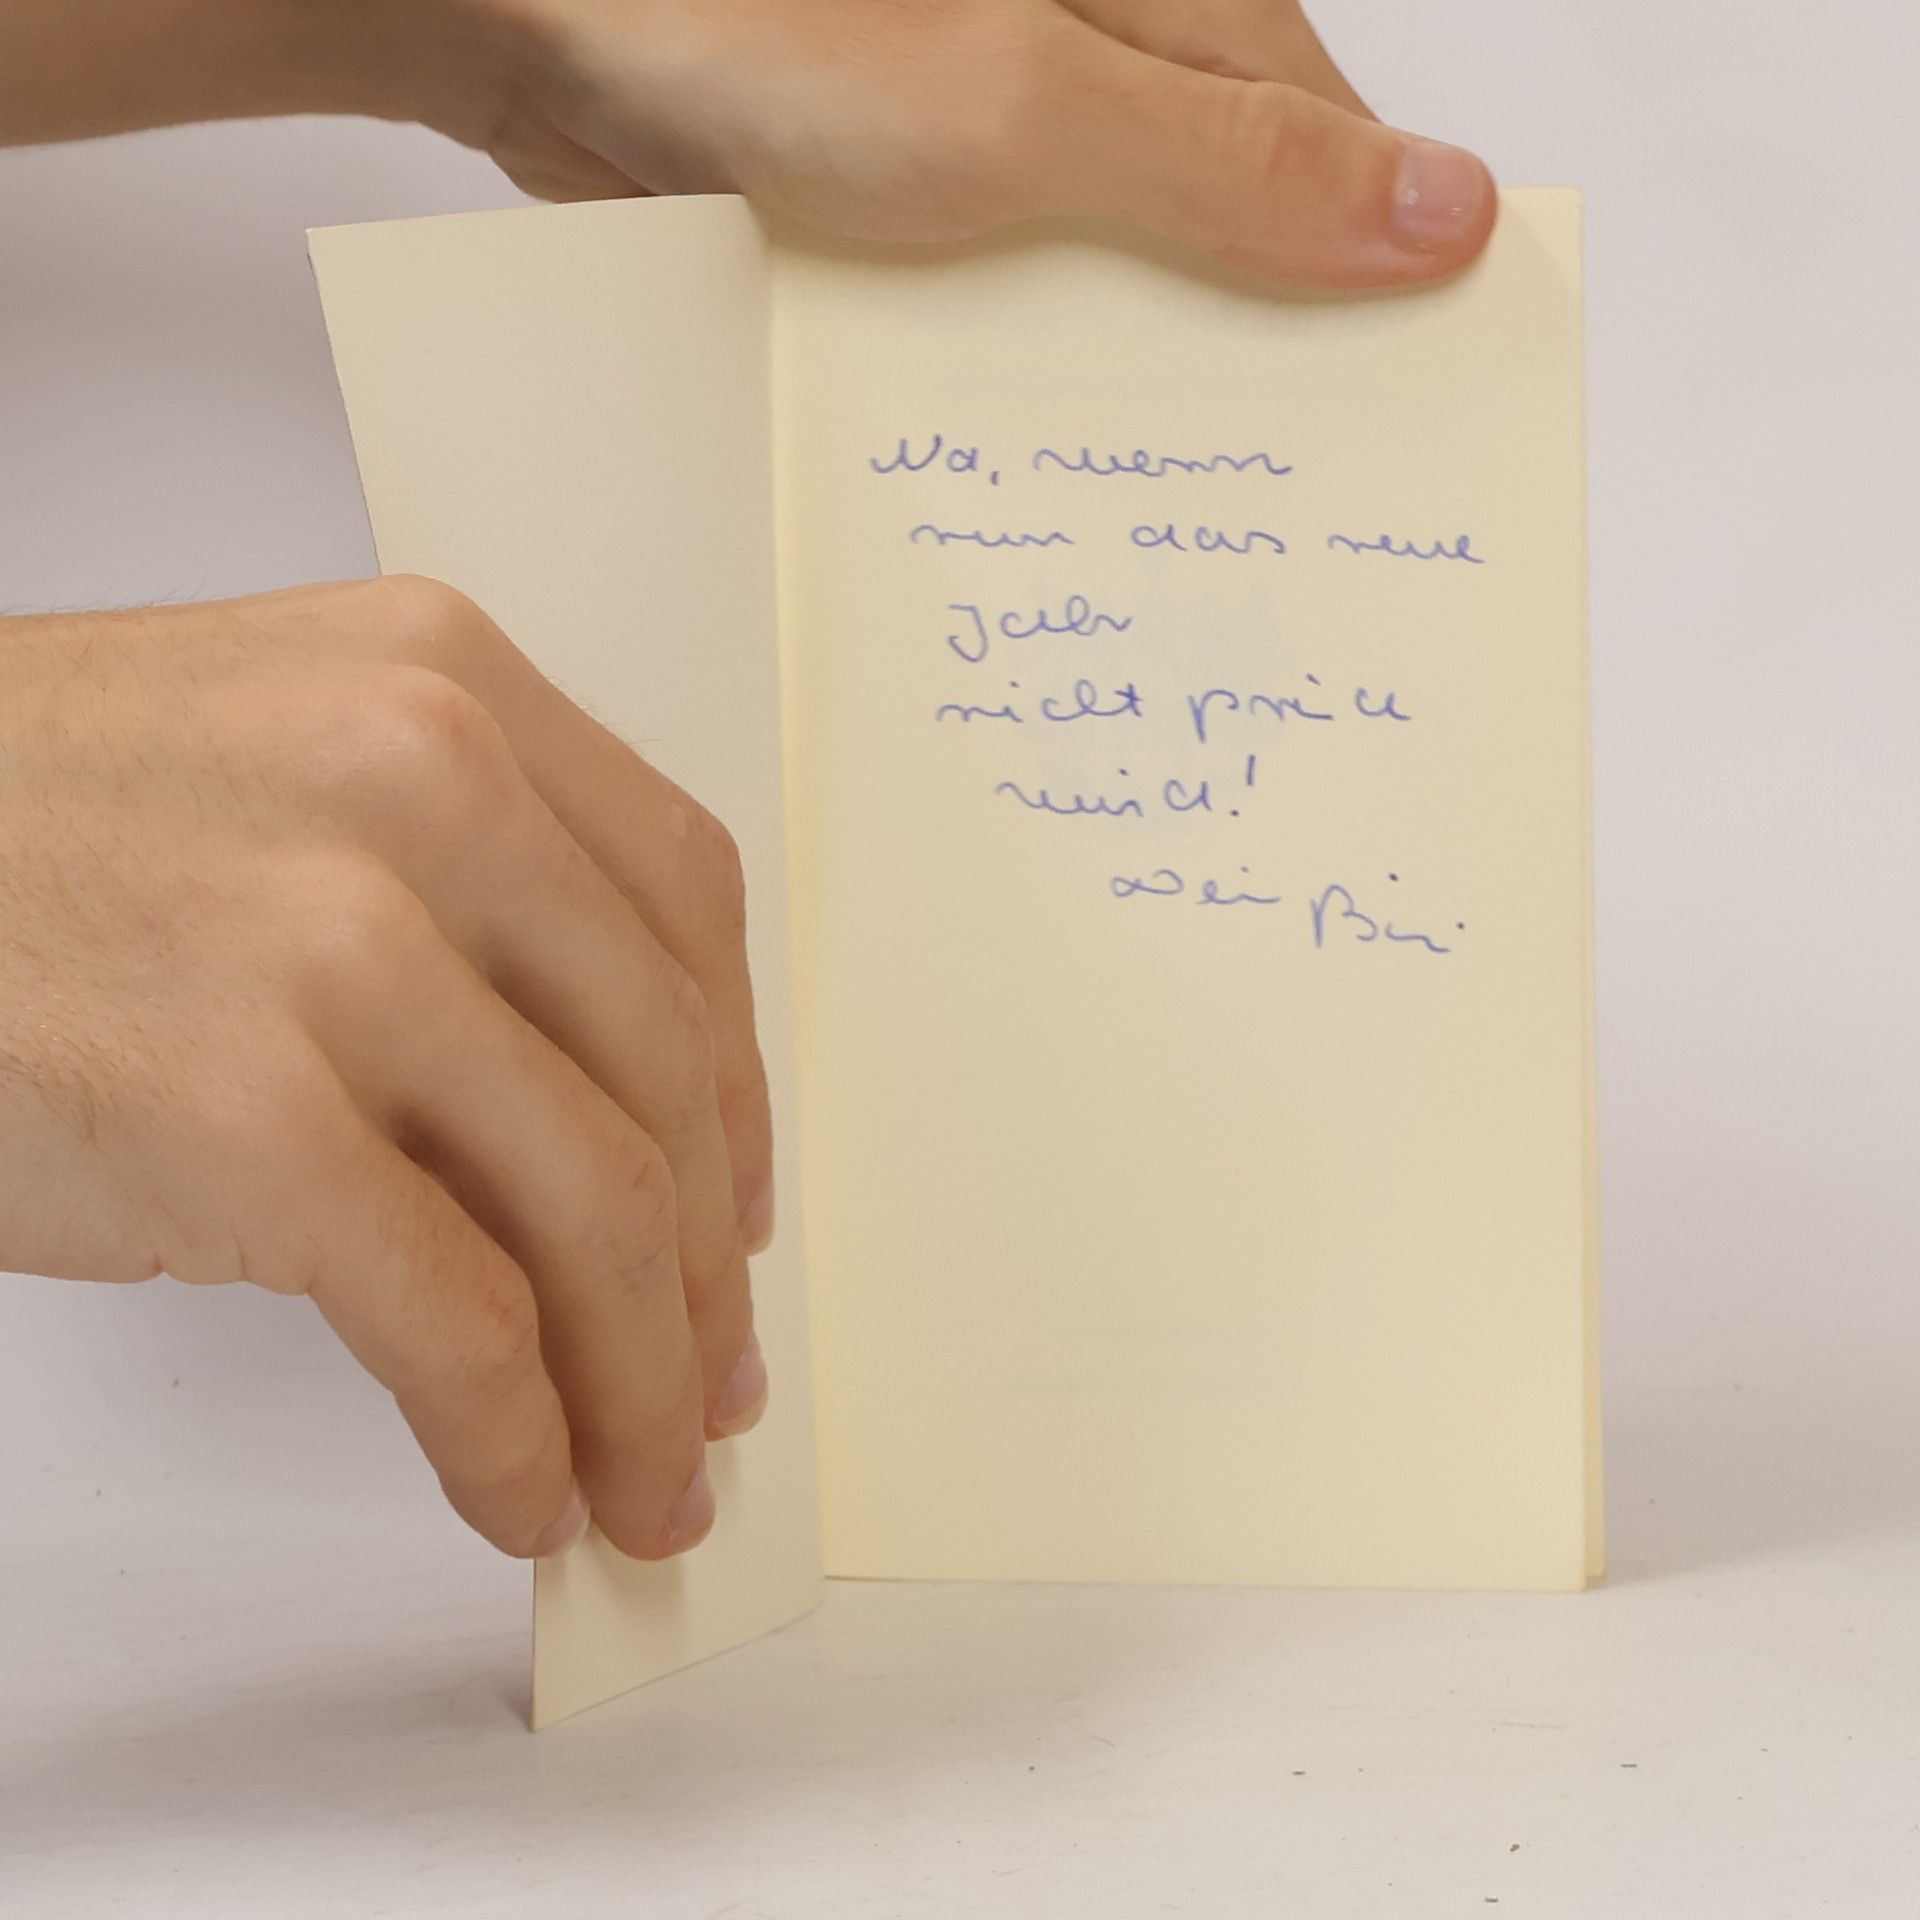 Na, wenn
nun das neue
Jahr
nicht prima
wird!
Dein